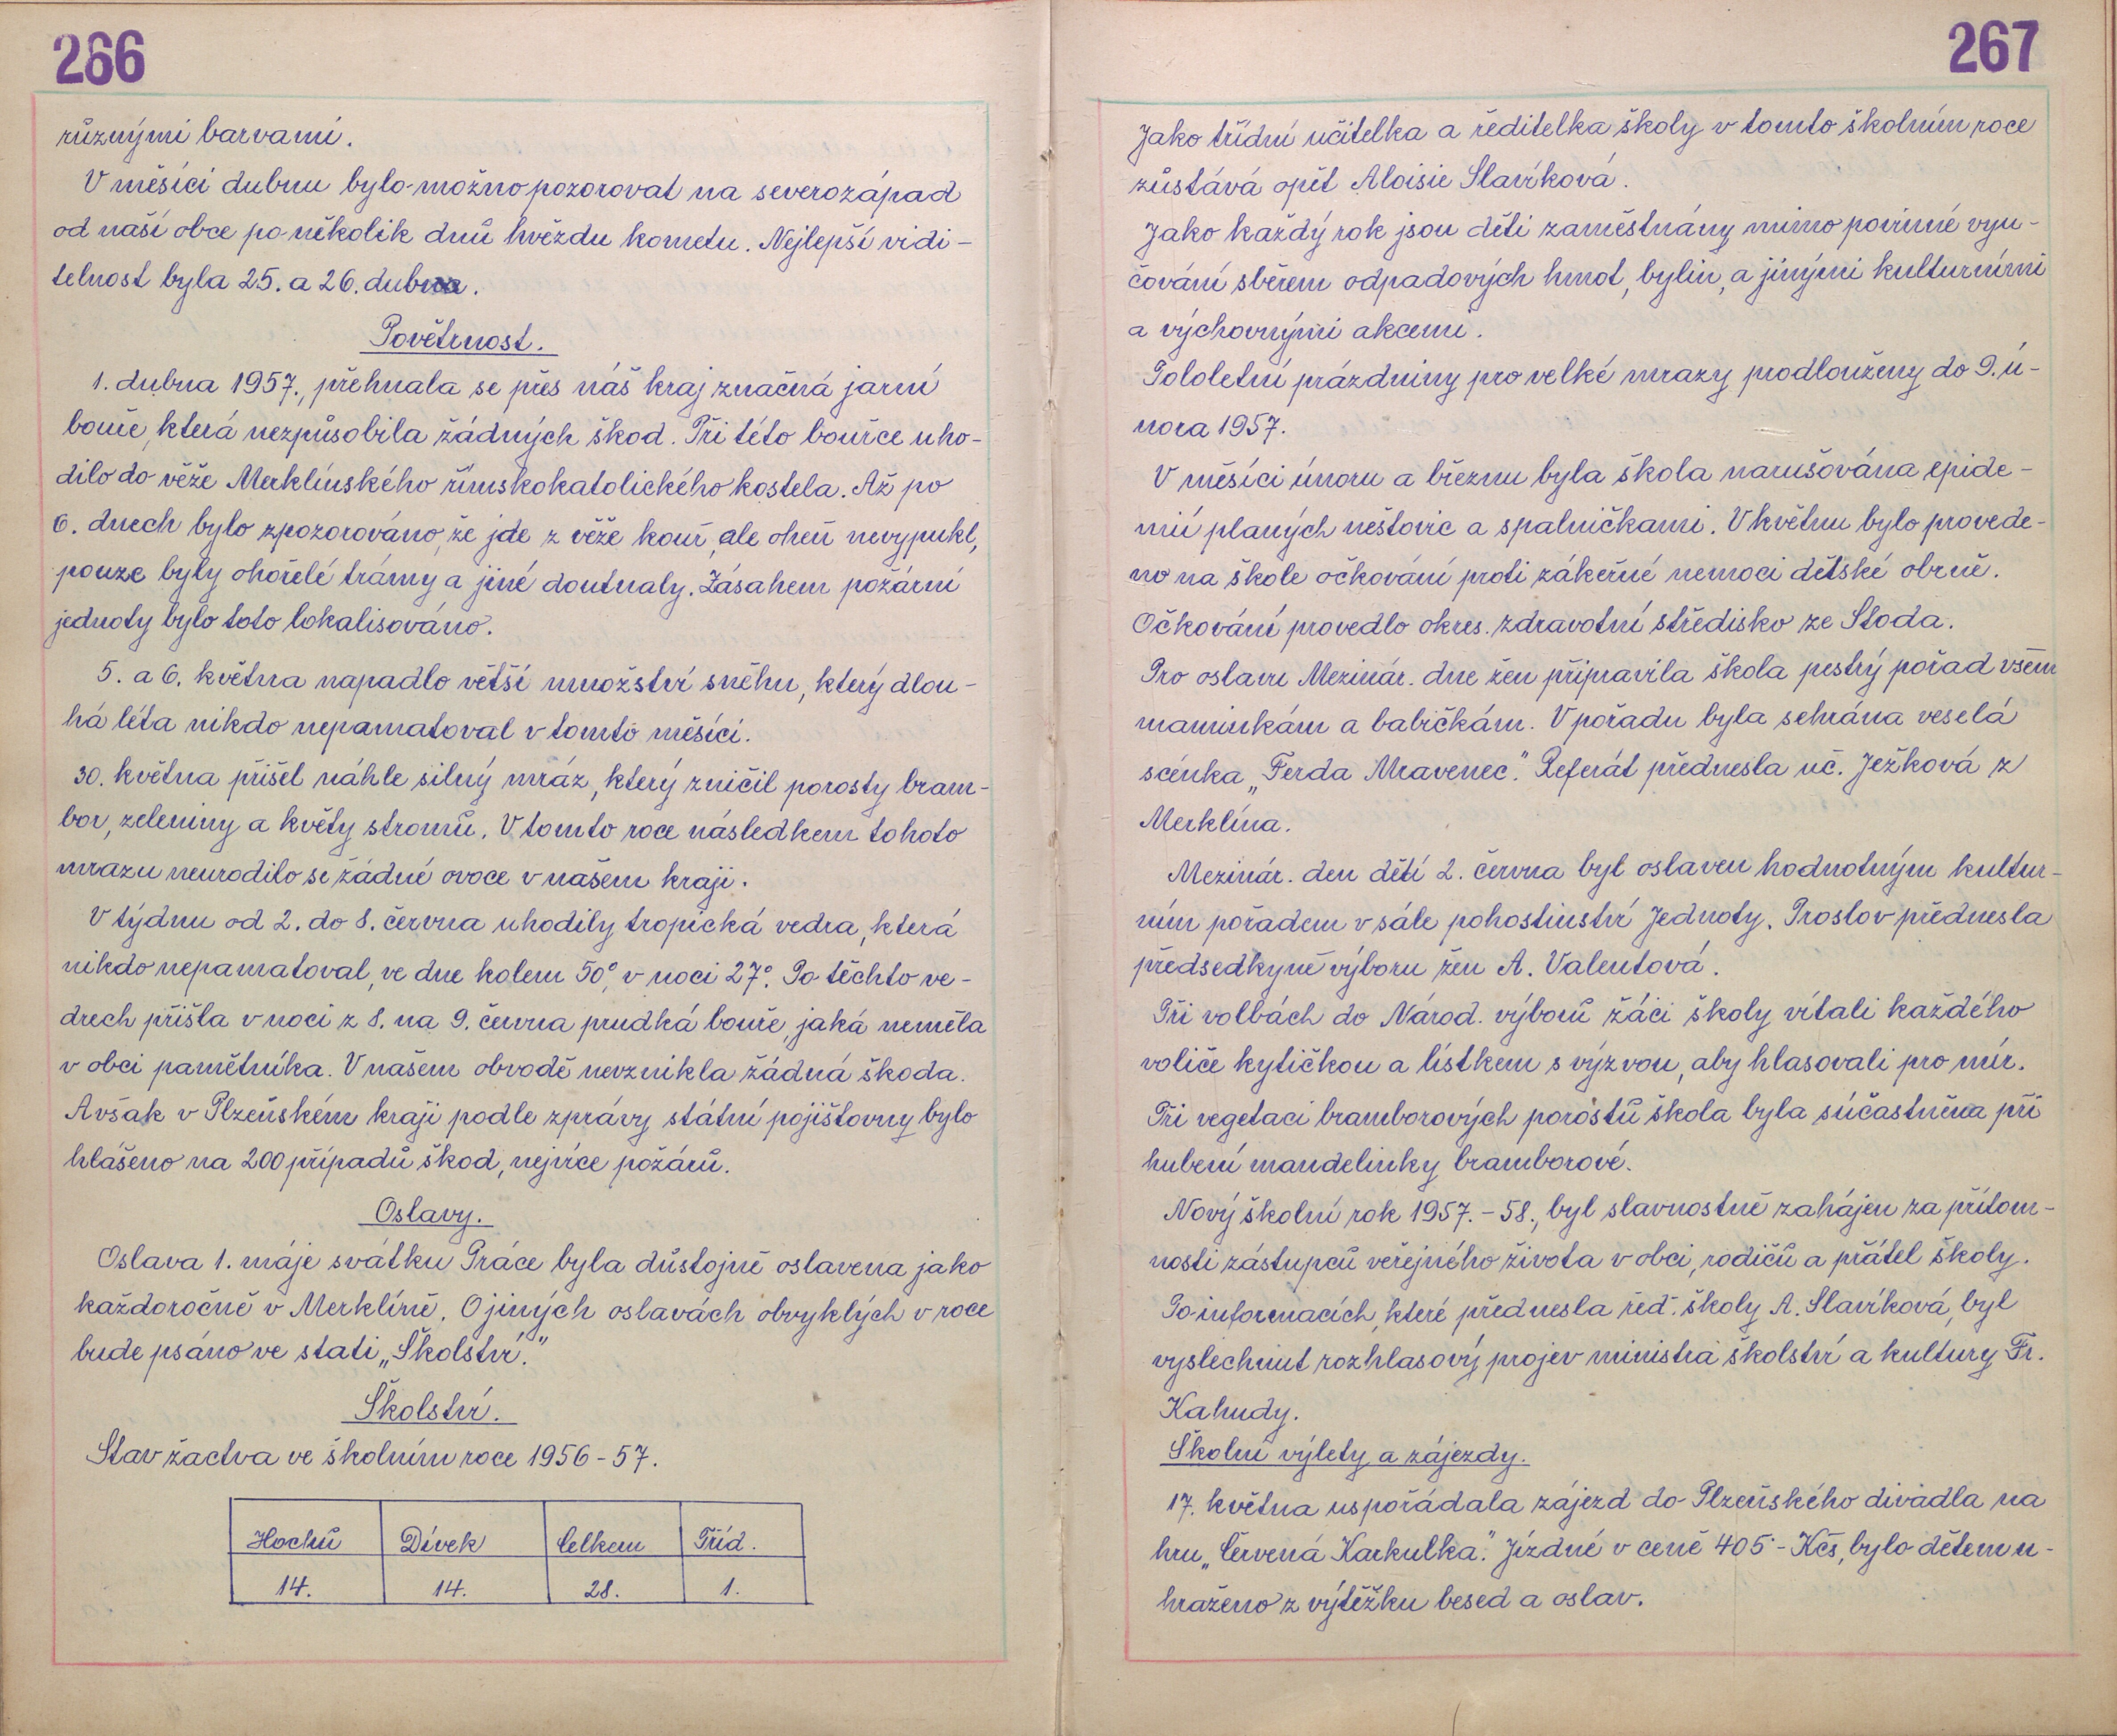 266
různými barvami.
V měsíci dubnu bylo možno pozorovat na severozápad
od naší obce po několik dnů hvězdu kometu. Nejlepší vidi-
telnost byla 25. a 26. dubna.
Povětrnost.
1. dubna 1957., přehnala se přes náš kraj značná jarní
bouře, která nezpůsobila žádných škod. Při této bouřce uho-
dilo do věže Merklínského římskokatolického kostela. Až po
6. dnech bylo zpozorováno, že jde z věže kouř, ale oheň nevypukl,
pouze byly ohořelé trámy a jiné doutnaly. Zásahem požární
jednoty bylo toto lokalisováno.
5. a 6. května napadlo větší množství sněhu, který dlou-
há léta nikdo nepamatoval v tomto měsíci.
30. května přišel náhle silný mráz, který zničil porosty bram-
bor, zeleniny a květy stromů. V tomto roce následkem tohoto
mrazu neurodilo se žádné ovoce v našem kraji.
V týdnu od 2. do 8. června uhodily tropická vedra, která
nikdo nepamatoval, ve dne kolem 50°, v noci 27°. Po těchto ve-
drech přišla v noci z 8. na 9. června prudká bouře, jaká neměla
v obci pamětníka. V našem obvodě nevznikla žádná škoda.
Avšak v Plzeňském kraji podle zprávy státní pojišťovny bylo
hlášeno na 200 případů škod, nejvíce požárů.
Oslavy.
Oslava 1. máje svátku Práce byla důstojně oslavena jako
každoročně v Merklíně. O jiných oslavách obvyklých v roce
bude psáno ve stati „Školství.“
Školství.
Stav žactva ve školním roce 1956-57.
Hochů Dívek Celkem Tříd.
14. 14. 28. 1.
267
Jako třídní učitelka a ředitelka školy v tomto školním roce
zůstává opět Aloisie Slavíková.
Jako každý rok jsou děti zaměstnány mimo povinné vyu-
čování sběrem odpadových hmot, bylin, a jinými kulturními
a výchovnými akcemi.
Pololetní prázdniny pro velké mrazy prodlouženy do 9. ú-
nora 1957.
V měsíci únoru a březnu byla škola narušována epide-
mií planých neštovic a spalničkami. V květnu bylo provede-
no na škole očkování proti zákeřné nemoci dětské obrně.
Očkování provedlo okres. zdravotní středisko ze Stoda.
Pro oslavu Mezinár. dne žen připravila škola pestrý pořad všem
maminkám a babičkám. V pořadu byla sehrána veselá
scénka „Ferda Mravenec.“ Referát přednesla uč. Ježková z
Merklína.
Mezinár. den dětí 2. června byl oslaven hodnotným kultur-
ním pořadem v sále pohostinství Jednoty. Proslov přednesla
předsedkyně výboru žen A. Valentová.
Při volbách do Národ. výborů žáci školy vítali každého
voliče kytičkou a lístkem s výzvou, aby hlasovali pro mír.
Při vegetaci bramborových porostů škola byla súčastněna při
hubení mandelinky bramborové.
Nový školní rok 1957.-58., byl slavnostně zahájen za přítom-
nosti zástupců veřejného života v obci, rodičů a přátel školy.
Po informacích, které přednesla řed. školy A. Slavíková, byl
vyslechnut rozhlasový projev ministra školství a kultury Fr.
Kahudy.
Školní výlety a zájezdy.
17. května uspořádala zájezd do Plzeňského divadla na
hru „Červená Karkulka.“ Jízdné v ceně 405.- Kčs, bylo dětem u-
hraženo z výtěžku besed a oslav.